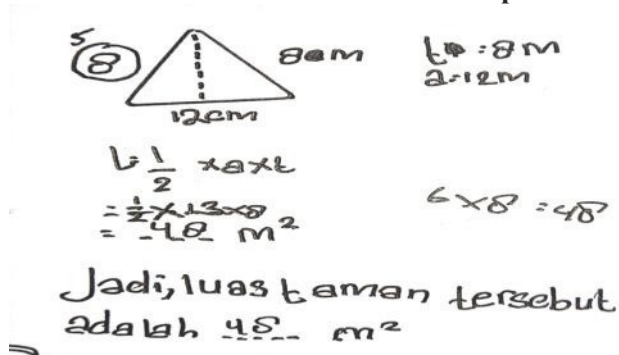 5
8
8cm
t : 8m
a : 12m
12cm
L = 1/2 x a x t
= 1/2 x 13 x 8
= 48 m²
6 x 8 = 48
Jadi, luas taman tersebut
adalah 48 m²